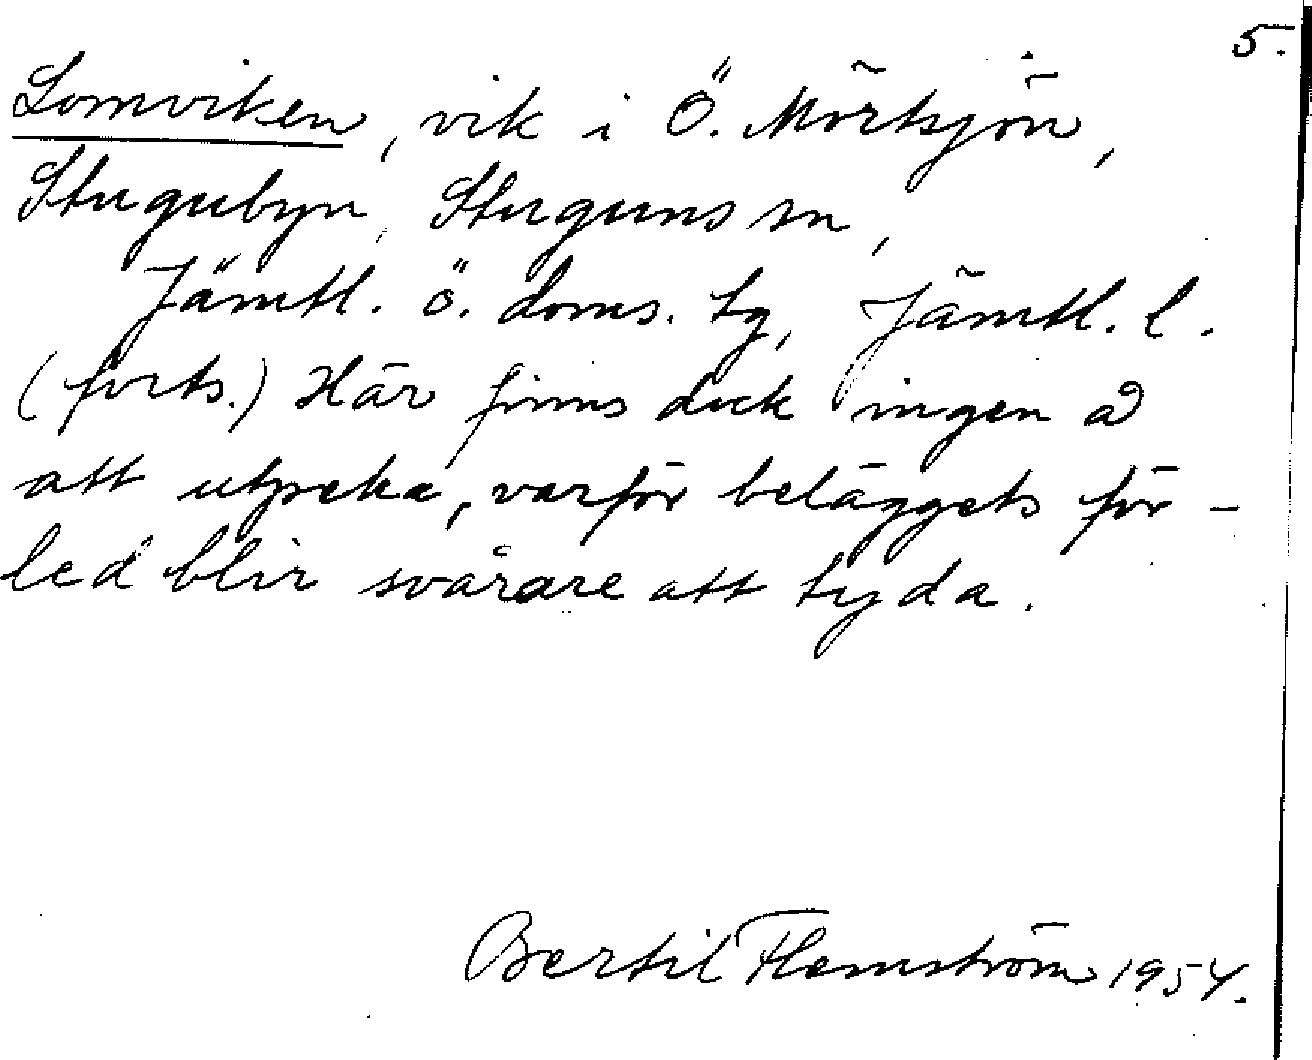 5.
Lomviken, vik i Ö. Mörtsjön,
Stugubyn, Stuguns sn,
Jämtl. ö. doms. tg, Jämtl. l.
(forts.) Här finns dock ingen å
att utpeka, varför beläggets för-
led blir svårare att tyda.
Bertil Flemström 1954.